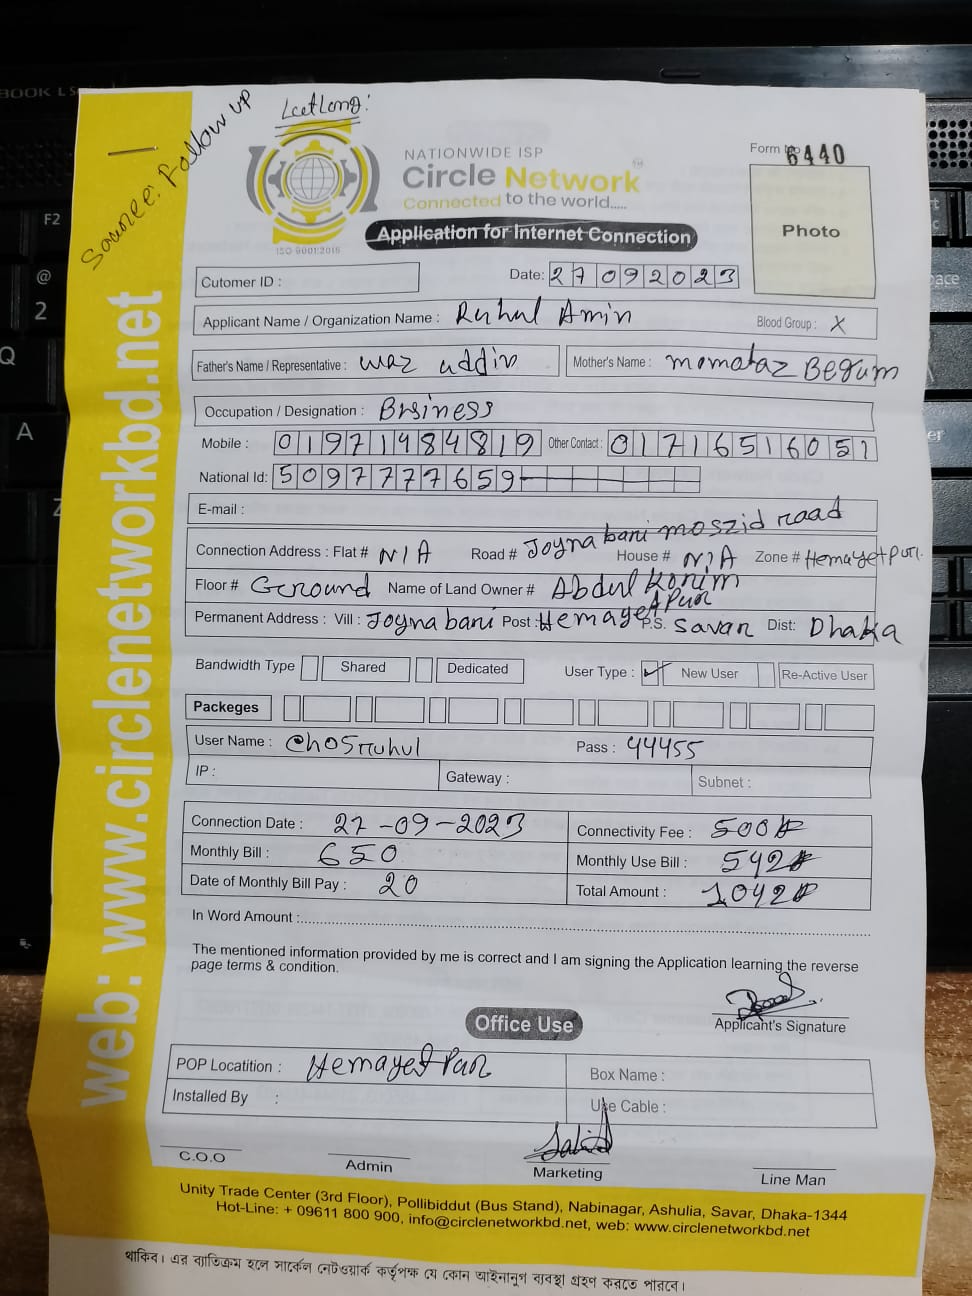 BOOK L S
Source: Follow UP
NATIONWIDE ISP
Circle Network™
Connected to the world.....
ISO 9001:2015
Form No 6440
Photo
Application for Internet Connection
Cutomer ID :
Date: 27092023
Applicant Name / Organization Name : Ruhul Amin Blood Group : X
Father's Name / Representative : waz uddin Mother's Name : momotaz Begum
Occupation / Designation : Business
Mobile : 01971484819 Other Contact : 01716516051
National Id: 5097777659
E-mail :
Connection Address : Flat # N/A Road # Joyna bani moszid road House # N/A Zone # Hemayetpur.
Floor # Ground Name of Land Owner # Abdul Korim
Permanent Address : Vill : Joyna bani Post : Hemayetpur P.S. Savar Dist: Dhaka
Bandwidth Type Shared Dedicated User Type : ✓ New User Re-Active User
Packeges
User Name : ch05ruhul Pass : 44455
IP : Gateway : Subnet :
Connection Date : 27-09-2023 Connectivity Fee : 500
Monthly Bill : 650 Monthly Use Bill : 542
Date of Monthly Bill Pay : 20 Total Amount : 1042
In Word Amount :
The mentioned information provided by me is correct and I am signing the Application learning the reverse
page terms & condition.
Applicant's Signature
Office Use
POP Locatition : Hemayetpur Box Name :
Installed By : Use Cable :
C.O.O Admin Marketing Line Man
Unity Trade Center (3rd Floor), Pollibiddut (Bus Stand), Nabinagar, Ashulia, Savar, Dhaka-1344
Hot-Line: + 09611 800 900, info@circlenetworkbd.net, web: www.circlenetworkbd.net
থাকিব। এর ব্যতিক্রম হলে সার্কেল নেটওয়ার্ক কর্তৃপক্ষ যে কোন আইনানুগ ব্যবস্থা গ্রহণ করতে পারবে।
web: www.circlenetworkbd.net